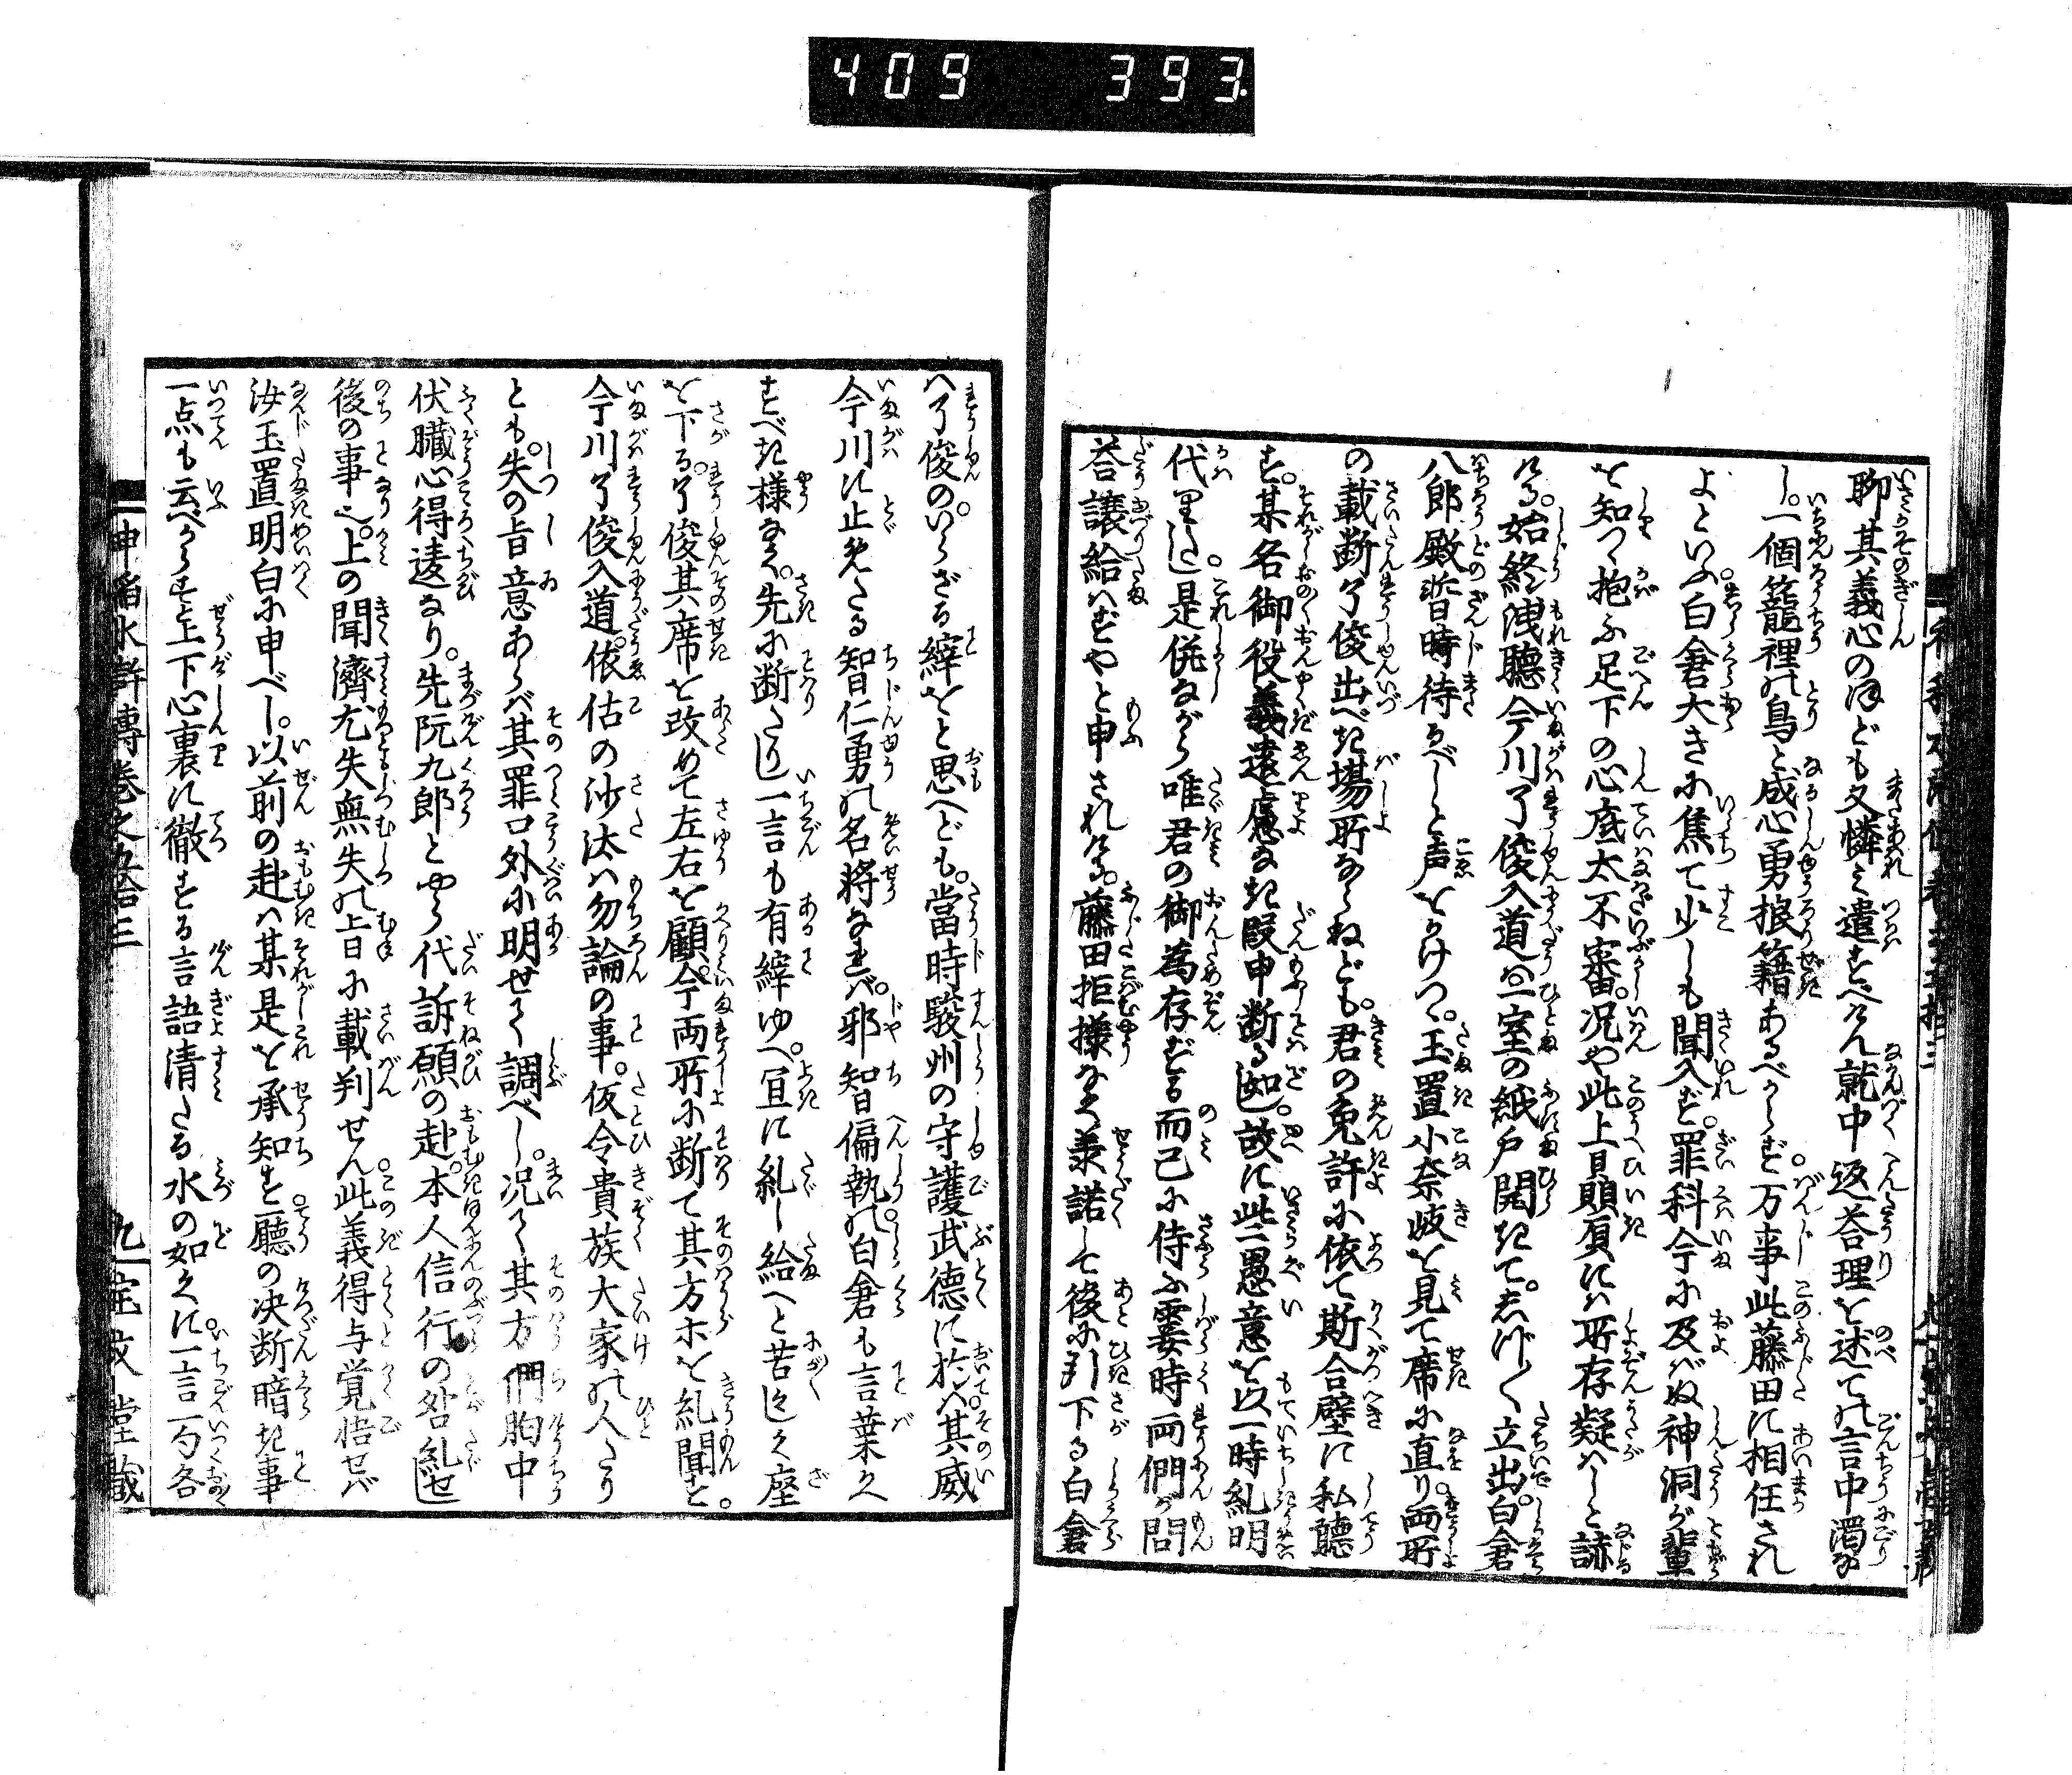 409 393
聊其義心のほども又憐み遣すべけん就中返答理を述ての言中濁な
し。一個籠裡の鳥と成心勇狼籍あるべからず。万事此藤田に相任され
よといふ。白倉大きに焦て少しも聞入ず。罪科今に及ばぬ神洞が輩
を知つゝ抱ふ足下の心底太不審。况や此上贔屓には所存疑はしと諦
ける。始終洩聴今川了俊入道が一室の紙戸開きて。志づ〳〵立出。白倉
八郎殿暫時待るべしと声をかけつ。玉置小奈岐を見て席に直り。両所
の裁断了俊出べき場所ならねども。君の免許に依て斯合壁に私聴
す。某名御役義遠慮なき段申断る如し。故に此愚意を以一時糺明
代りし。是併ながら唯君の御為存ずる而已に侍ふ。霎時両們が問
答譲給はずやと申されける。藤田拒様なく承諾して後に引下る白倉
へ了俊の。いらざる縡をと思へども。當時駿州の守護武徳に於いては其威
今川に止めたる智仁勇の名将なれば。邪智偏執の白倉も言葉く
すべき様なく。先に断りし一言も有縡ゆへ。宜に糺し給へと苦〻しく座
を下る。了俊其席を改めて左右を顧。今両所に断て其方ホを糺聞す。
今川了俊入道。依估の沙汰は勿論の事。仮令貴族大家の人たり
とも。失の旨意あらば其罪口外に明せて調べし。况て其方們胸中
伏臓心得違なり。先阮九郎とやら代訴願の赴。本人信行の咎糺せし
後の事也。上の聞濟尤失無失の上旨に載判せん。此義得与覚悟せば
汝玉置明白に申べし。以前の赴は某是を承知す。聴の决断暗き事
一点も云べからずと上下心裏に徹する言語清たる水の如くに。一言一句各
神稲水滸傳巻之五拾三
九
宝文堂蔵